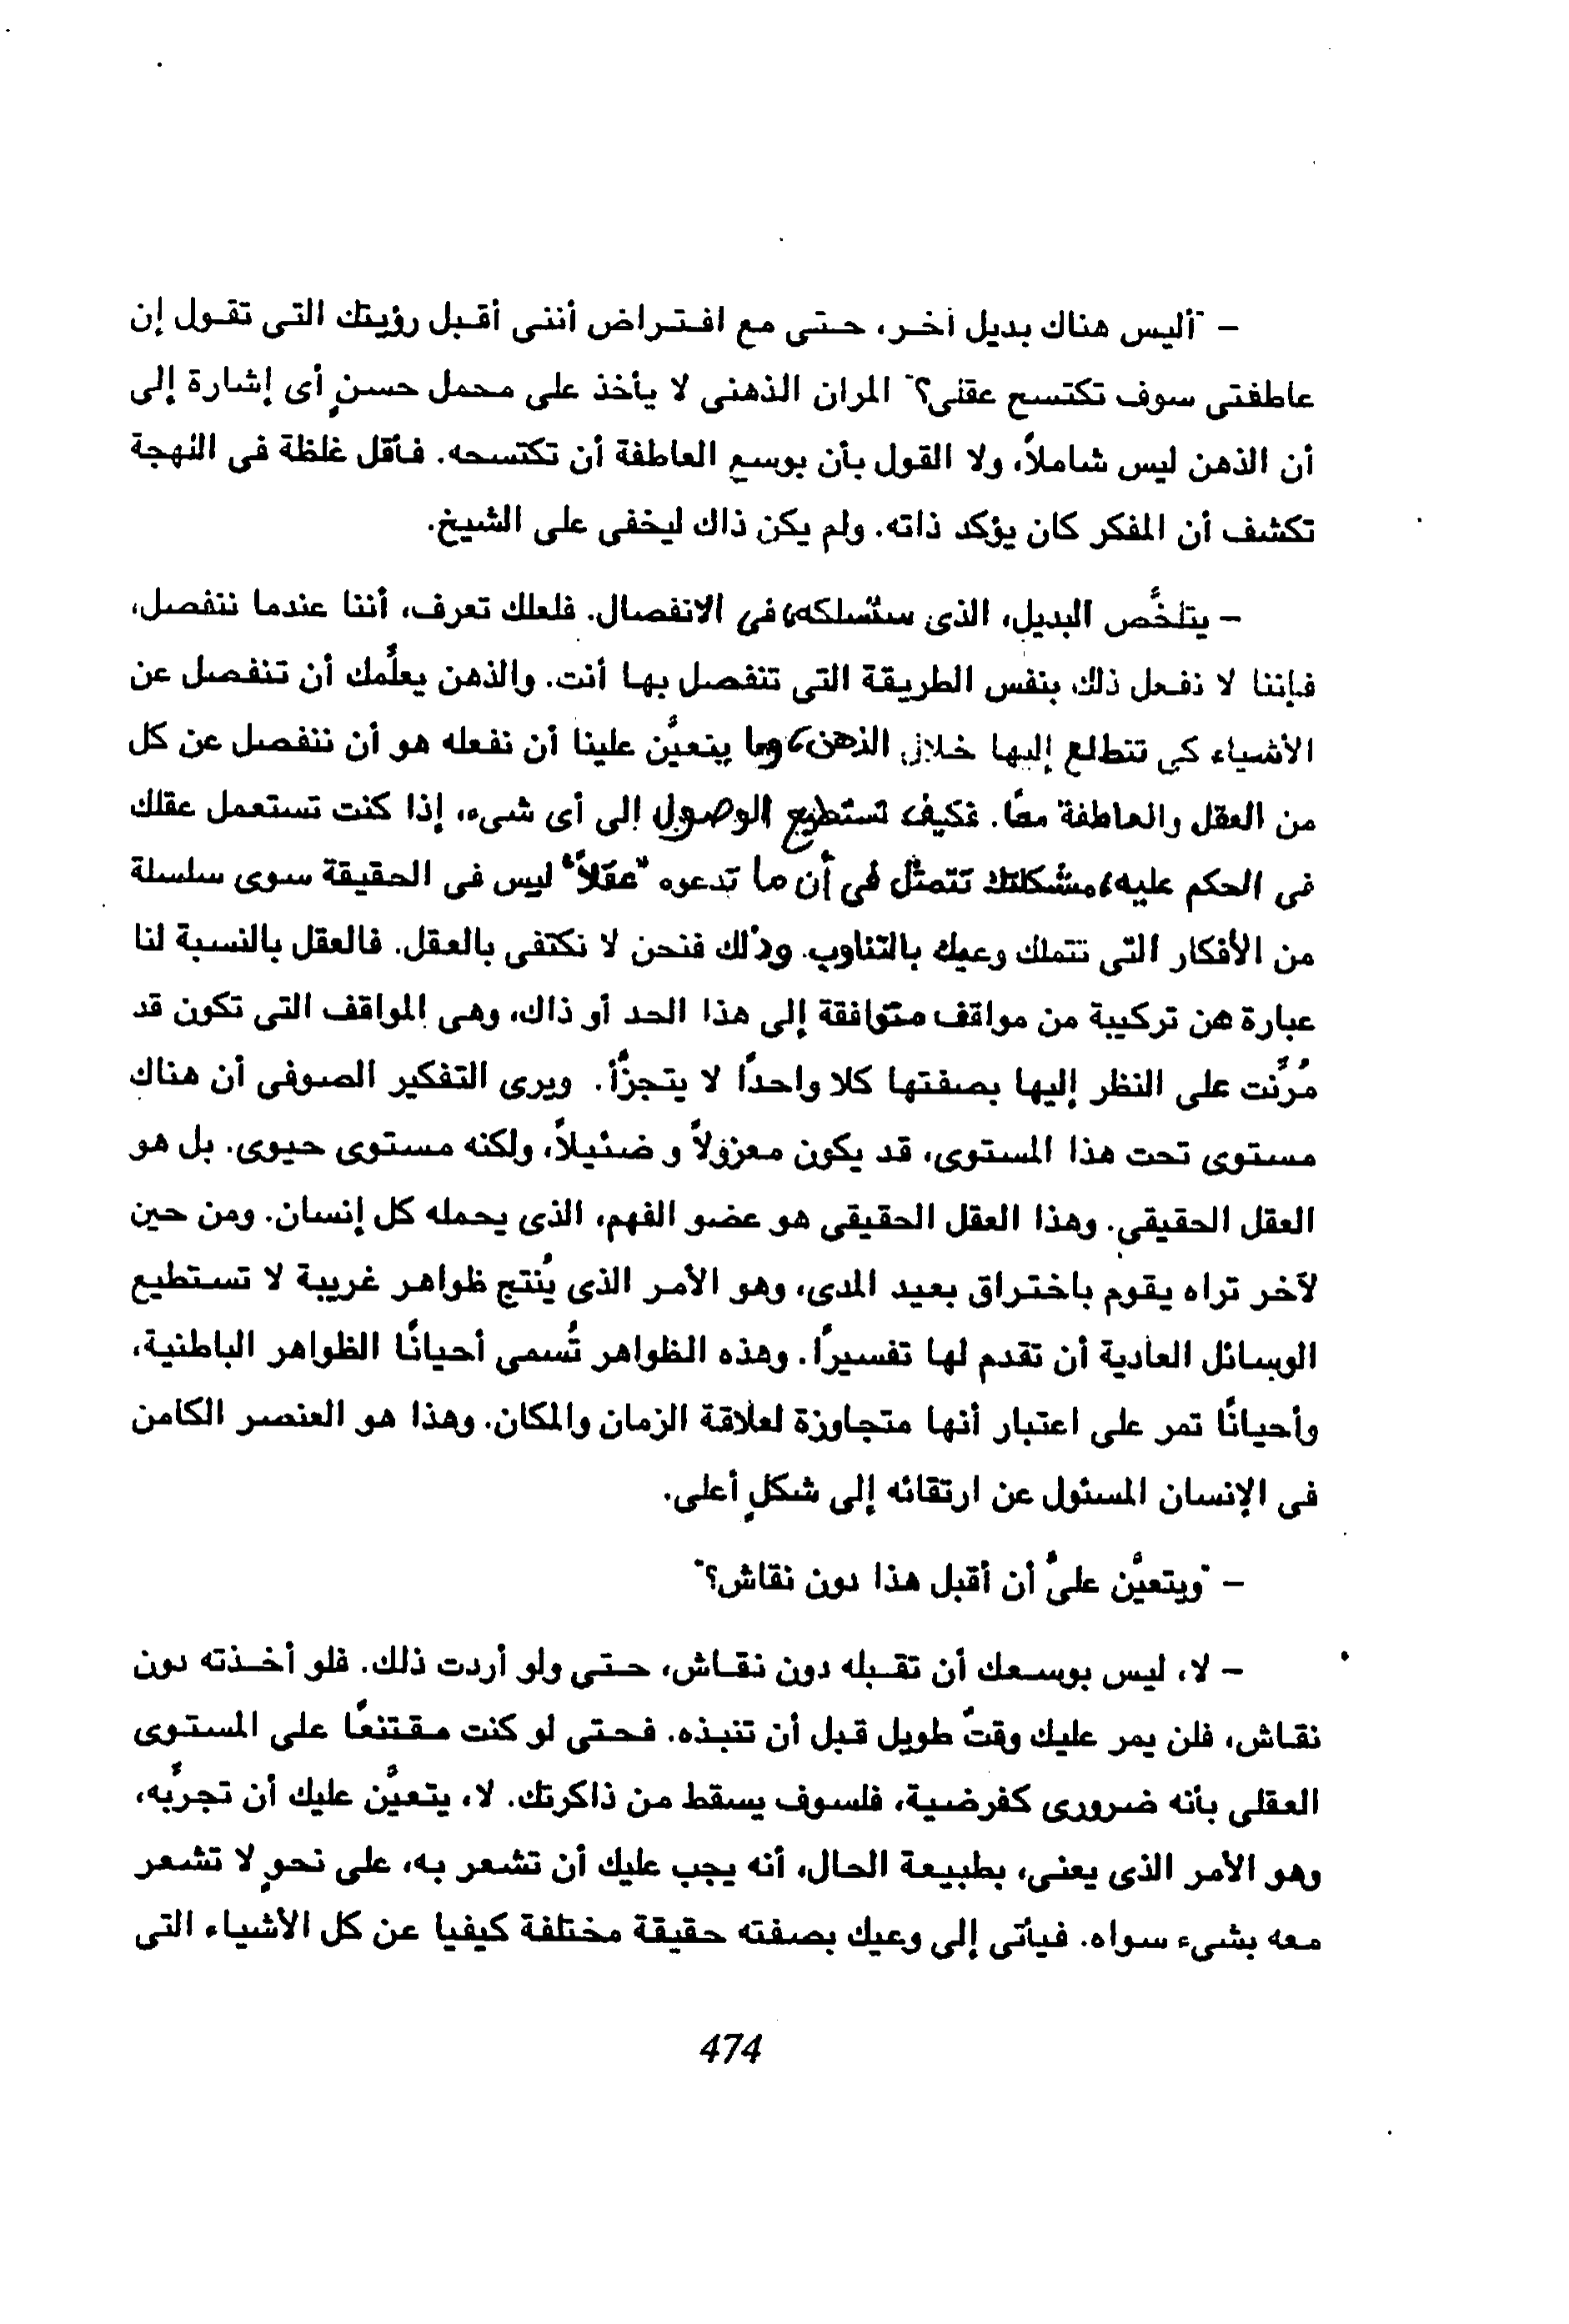 - "أليس هناك بديل آخر، حتى مع افتراض أننى أقبل رؤيتك التى تقول إن
عاطفتى سوف تكتسح عقلى؟" المران الذهنى لا يأخذ على محمل حسنٍ أى إشارة إلى
أن الذهن ليس شاملاً، ولا القول بأن بوسع العاطفة أن تكتسحه. فأقل غلظة فى اللهجة
تكشف أن المفكر كان يؤكد ذاته. ولم يكن ذاك ليخفى على الشيخ.
- يتلخَّص البديل، الذى ستسلكه، فى الانفصال. فلعلك تعرف، أننا عندما ننفصل،
فإننا لا نفعل ذلك بنفس الطريقة التى تنفصل بها أنت. والذهن يعلِّمك أن تنفصل عن
الأشياء كى تتطلع إليها خلال الذهن، وما يتعيَّن علينا أن نفعله هو أن ننفصل عن كل
من العقل والعاطفة معًا. فكيف تستطيع الوصول إلى أى شىء، إذا كنت تستعمل عقلك
فى الحكم عليه؟ مشكلتك تتمثَّل فى أن ما تدعوه "عقلاً" ليس فى الحقيقة سوى سلسلة
من الأفكار التى تتملك وعيك بالتناوب. وذلك فنحن لا نكتفى بالعقل. فالعقل بالنسبة لنا
عبارة هن تركيبة من مواقف متوافقة إلى هذا الحد أو ذاك، وهى المواقف التى تكون قد
مُرِّنت على النظر إليها بصفتها كلا واحدًا لا يتجزَّأ. ويرى التفكير الصوفى أن هناك
مستوى تحت هذا المستوى، قد يكون معزولاً و ضئيلاً، ولكنه مستوى حيوى. بل هو
العقل الحقيقى. وهذا العقل الحقيقى هو عضو الفهم، الذى يحمله كل إنسان. ومن حين
لآخر تراه يقوم باختراق بعيد المدى، وهو الأمر الذى يُنتج ظواهر غريبة لا تستطيع
الوسائل العادية أن تقدم لها تفسيرًا. وهذه الظواهر تُسمى أحيانًا الظواهر الباطنية،
وأحيانًا تمر على اعتبار أنها متجاوزة لعلاقة الزمان والمكان. وهذا هو العنصر الكامن
فى الإنسان المسئول عن ارتقائه إلى شكلٍ أعلى.
- "ويتعيَّن علىَّ أن أقبل هذا دون نقاش؟"
- لا، ليس بوسعك أن تقبله دون نقاش، حتى ولو أردت ذلك. فلو أخذته دون
نقاش، فلن يمر عليك وقتٌ طويل قبل أن تنبذه. فحتى لو كنت مقتنعًا على المستوى
العقلى بأنه ضرورى كفرضية، فلسوف يسقط من ذاكرتك. لا، يتعيَّن عليك أن تجرِّبه،
وهو الأمر الذى يعنى، بطبيعة الحال، أنه يجب عليك أن تشعر به، على نحوٍ لا تشعر
معه بشىء سواه. فيأتى إلى وعيك بصفته حقيقة مختلفة كيفيا عن كل الأشياء التى
474